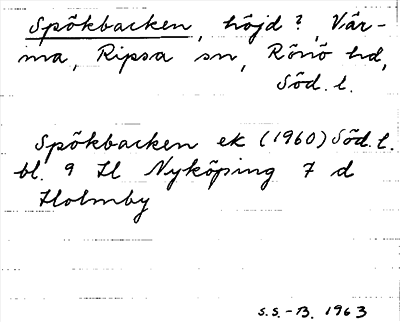 Spökbacken, höjd?, Vår-
ma, Ripsa sn, Rönö hd,
Söd. l.
Spökbacken ek (1960) Söd. l.
bl. 9 H Nyköping 7 d
Holmby
S.S.-B. 1963